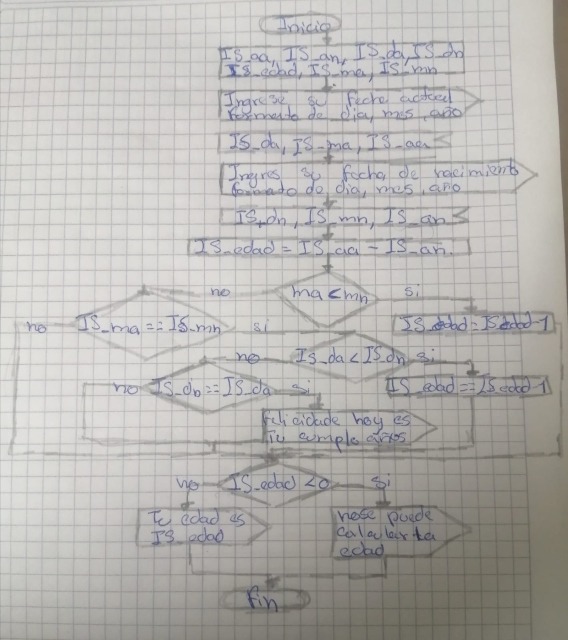 Inicio
IS_aa, IS_an, IS_da, IS_dn
IS_edad, IS_ma, IS_mn
Ingrese su fecha actual
formato de dia, mes, año
IS_da, IS_ma, IS_aa
Ingres su fecha de nacimiento
formado de dia, mes, año
IS_dn, IS_mn, IS_an
IS_edad = IS_aa - IS_an.
no ma < mn si
no IS_ma == IS_mn si IS_edad = IS edad-1
no IS_da < IS_dn si
no IS_dn == IS_da si IS_edad == IS edad-1
felicidade hoy es
Tu cumple años
no IS_edad < 0 si
Tu edad es
IS_edad
nose puede
calcular la
edad
Fin